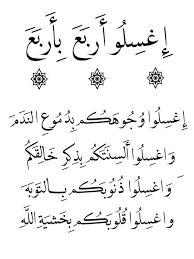 إغسلو أربع بأربع
إغسلوا وجوهكم بدموع الندم
واغسلوا ألسنتكم بذكر خالقكم
واغسلوا ذنوبكم بالتوبة
واغسلوا قلوبكم بخشية الله